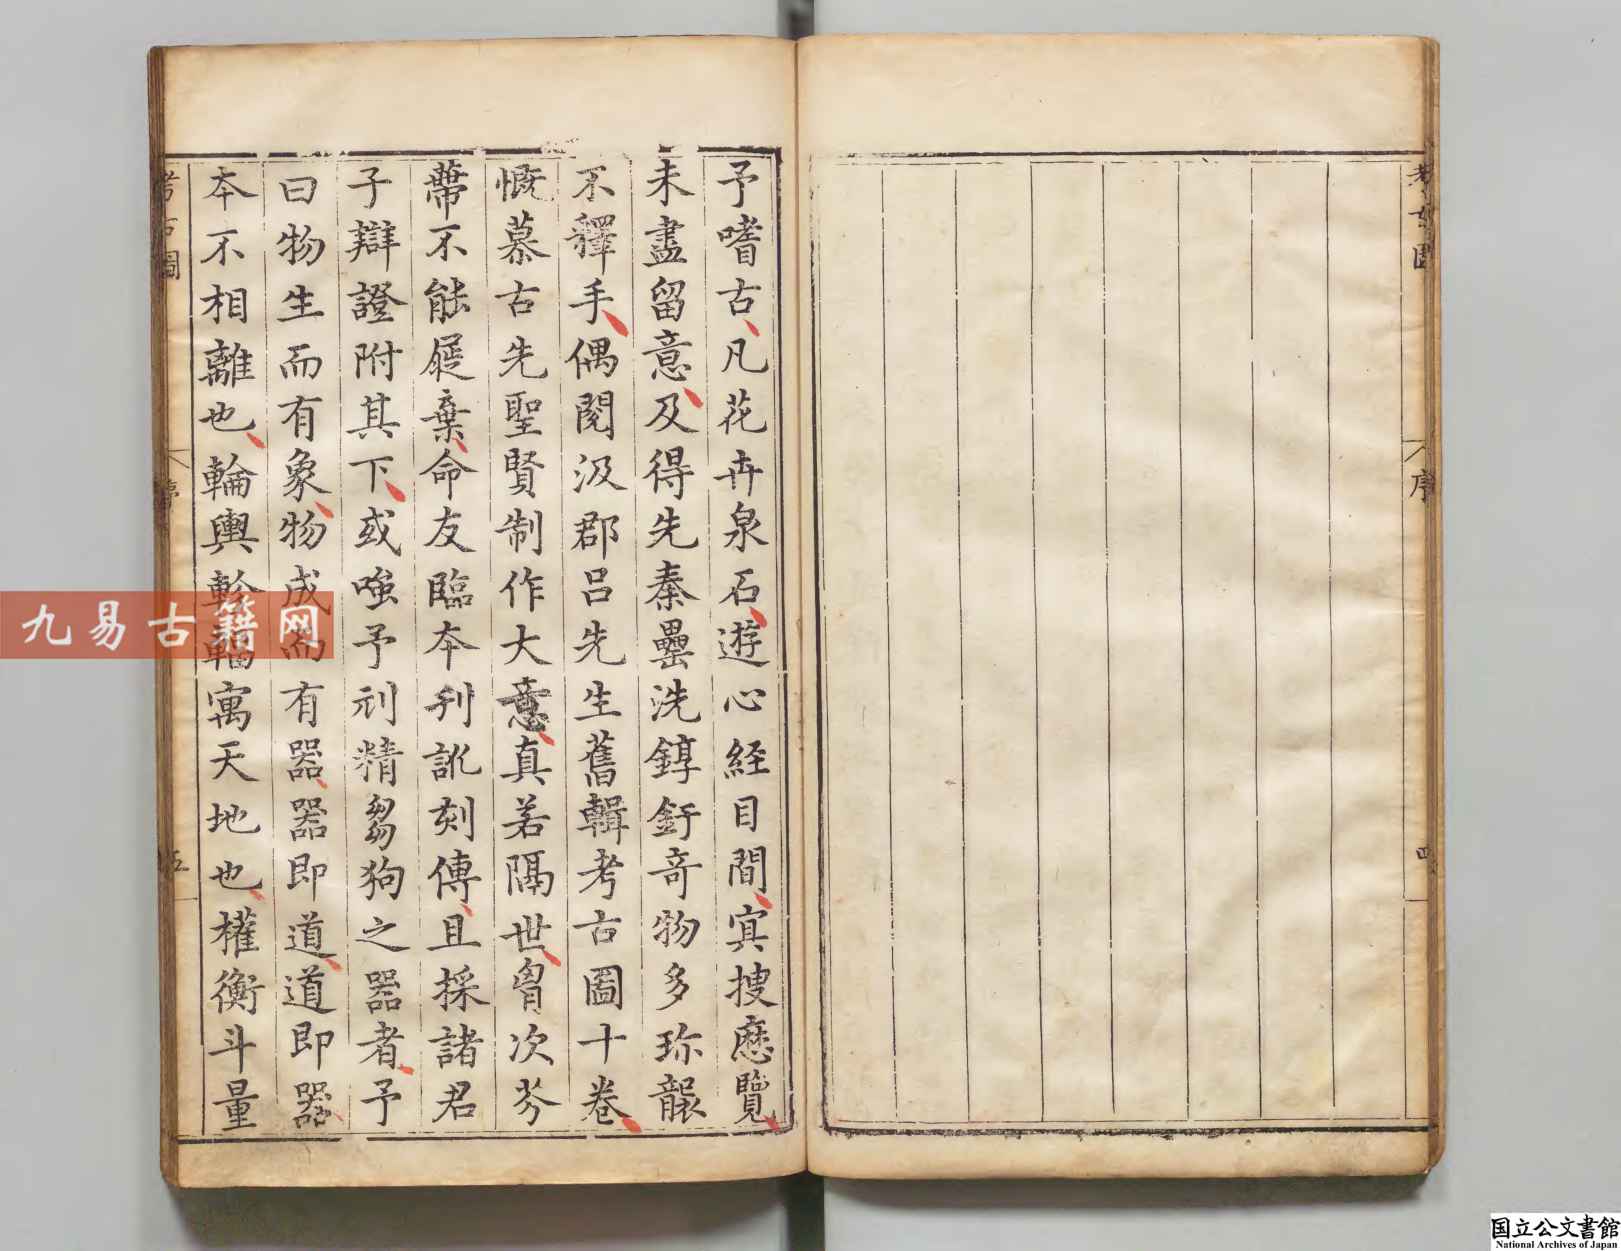 予嗜古凡花卉泉石遊心経目間冥搜歷覽
未盡留意及得先秦罍洗錞釪奇物多珎襲
不釋手偶閱汲郡呂先生舊輯考古圖十卷
慨慕古先聖賢制作大意真若隔世胷次芥
蔕不能屣棄命友臨本刊訛刻傳且採諸君
子辯證附其下或嗤予刓精芻狗之器者予
曰物生而有象物成而有器器即道道即器
本不相離也輪輿軫輻寓天地也權衡斗量
考古圖
序
四
考古圖
序
五
九易古籍网
国立公文書館
National Archives of Japan